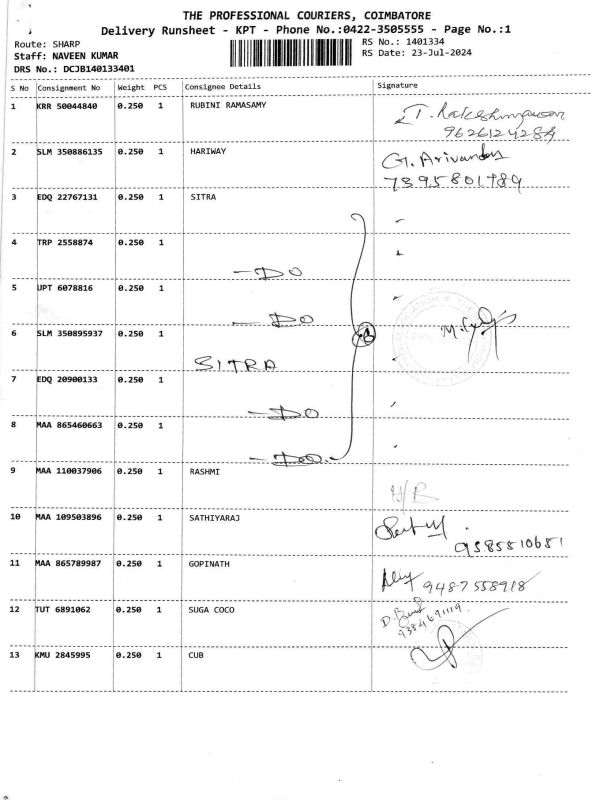 THE PROFESSIONAL COURIERS, COIMBATORE
Delivery Runsheet - KPT - Phone No.:0422-3505555 - Page No.:1
Route: SHARP
RS No.: 1401334
Staff: NAVEEN KUMAR
RS Date: 23-Jul-2024
DRS No.: DCJB140133401
S No Consignment No Weight PCS Consignee Details Signature
1 KRR 50044840 0.250 1 RUBINI RAMASAMY
9626124284
2 SLM 350886135 0.250 1 HARIWAY G. Arivandan
7395801789
3 EDQ 22767131 0.250 1 SITRA
4 TRP 2558874 0.250 1
- DO
5 UPT 6078816 0.250 1
- DO
6 SLM 350895937 0.250 1
SITRA
7 EDQ 20900133 0.250 1
- DO
8 MAA 865460663 0.250 1
- DO -
9 MAA 110037906 0.250 1 RASHMI
H/R
10 MAA 109503896 0.250 1 SATHIYARAJ
9385510651
11 MAA 865789987 0.250 1 GOPINATH
9487558918
12 TUT 6891062 0.250 1 SUGA COCO
9384691119
13 KMU 2845995 0.250 1 CUB